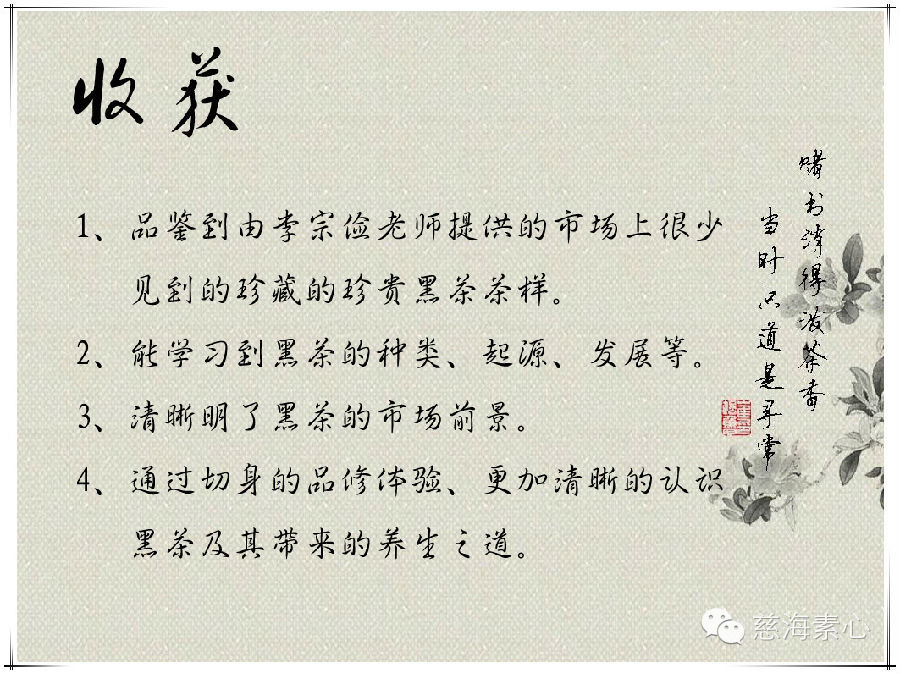 收获
1、品鉴到由李宗俭老师提供的市场上很少
见到的珍藏的珍贵黑茶茶样。
2、能学习到黑茶的种类、起源、发展等。
3、清晰明了黑茶的市场前景。
4、通过切身的品修体验、更加清晰的认识
黑茶及其带来的养生之道。
赌书消得泼茶香
当时只道是寻常
慈海素心